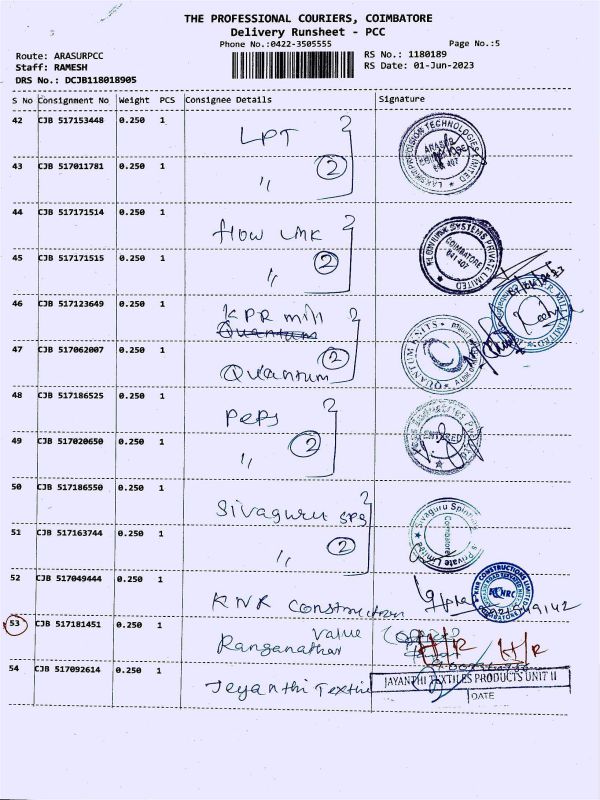 THE PROFESSIONAL COURIERS, COIMBATORE
Delivery Runsheet - PCC
Phone No.:0422-3505555 Page No.:5
Route: ARASURPCC RS No.: 1180189
Staff: RAMESH RS Date: 01-Jun-2023
DRS No.: DCJB118018905
S No Consignment No Weight PCS Consignee Details Signature
42 CJB 517153448 0.250 1 LPT
43 CJB 517011781 0.250 1 〃 2
LAKSHMI PRECISION TECHNOLOGIES LIMITED
ARASUR
COIMBATORE
641 407
44 CJB 517171514 0.250 1 flow link
45 CJB 517171515 0.250 1 〃 2
FLOWLINK SYSTEMS PRIVATE LIMITED
COIMBATORE
641 407
46 CJB 517123649 0.250 1 KPR mill
Quantum
47 CJB 517062007 0.250 1 Quantum 2
QUANTUM KNITS
K.P.R. MILL LIMITED
48 CJB 517186525 0.250 1 Peps
49 CJB 517020650 0.250 1 〃 2
ENTERED
50 CJB 517186550 0.250 1 Sivaguru SPG
51 CJB 517163744 0.250 1 〃 2
Sivaguru Spinning
Private Limited
Coimbatore
52 CJB 517049444 0.250 1 KNR Construction
KNR CONSTRUCTIONS LIMITED
KNRC
COIMBATORE
53 CJB 517181451 0.250 1 Ranganathan
value
H/R H/R
54 CJB 517092614 0.250 1 Jeyanthi Textile
JAYANTHI TEXTILES PRODUCTS UNIT II
DATE